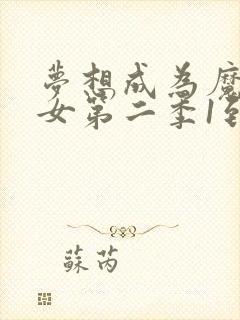 夢想成為魔
女第二季1到
蘇芮